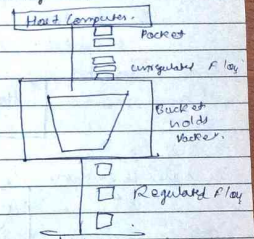 Host Computer.
Packet
unregulated Flow
Bucket
holds
Packet.
Regulated Flow